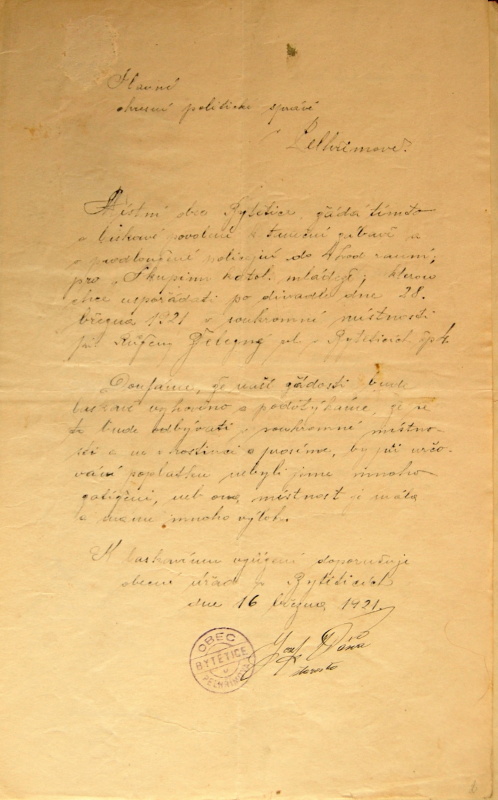 Slavné
okresní politické správě
Pelhřimově
Místní obec Bytětice, žádá tímto
o laskavé povolení k taneční zábavě a
o prodloužení policejní do 4 hod ranní;
pro "Skupinu katol. mládeže", kterou
chce uspořádati po divadle dne 28.
března 1921 v soukromní místnosti
v Bytěticích čp 4.
Doufáme, že naší žádosti bude
laskavě vyhověno a podotýkáme, že se
to bude odbývati v soukromní místno-
sti a ne v hostinci a prosíme, by při určo-
vání poplatku nebyli jsme mnoho
potíženi, neb ona místnost je malá
a mnoho výloh.
K laskavému vyřízení doporučuje
obecní úřad v Bytěticích
dne 16 března 1921.
Jos. Váňa
starosta
OBEC
BYTĚTICE
u
PELHŘIMOVA